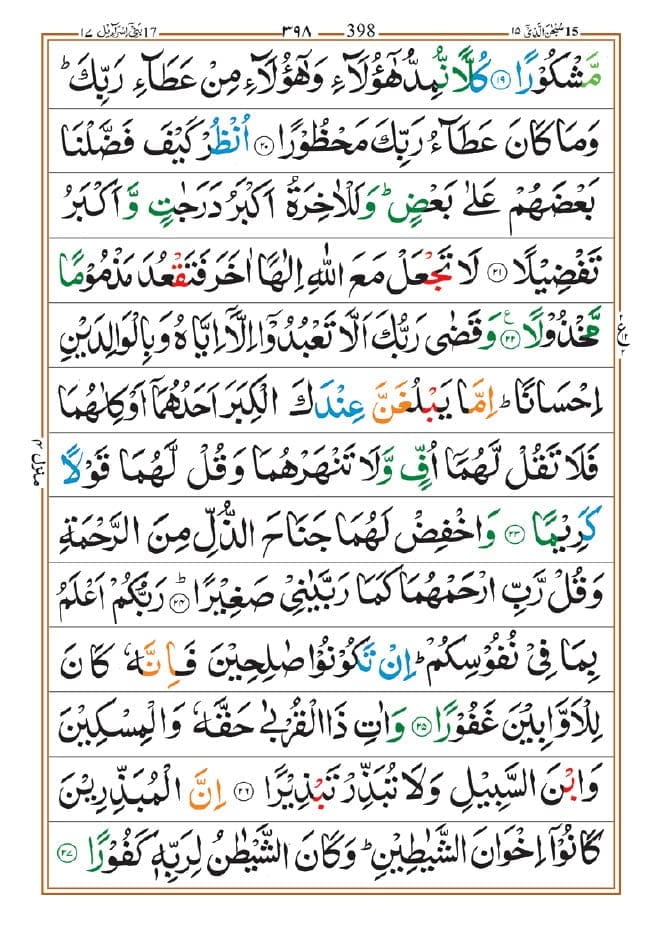 15 سُبْحٰنَ الَّذِيْٓ ١٥ 398 ٣٩٨ 17 بَنِيْٓ اِسْرَآءِيْل ١٧
مَّشْكُوْرًا ۝١٩ كُلًّا نُّمِدُّ هٰٓؤُلَآءِ وَهٰٓؤُلَآءِ مِنْ عَطَآءِ رَبِّكَ ؕ
وَمَا كَانَ عَطَآءُ رَبِّكَ مَحْظُوْرًا ۝٢٠ اُنْظُرْ كَيْفَ فَضَّلْنَا
بَعْضَهُمْ عَلٰى بَعْضٍ ؕ وَلَلْاٰخِرَةُ اَكْبَرُ دَرَجٰتٍ وَّاَكْبَرُ
تَفْضِيْلًا ۝٢١ لَا تَجْعَلْ مَعَ اللّٰهِ اِلٰهًا اٰخَرَ فَتَقْعُدَ مَذْمُوْمًا
مَّخْذُوْلًا ۝٢٢ ع وَقَضٰى رَبُّكَ اَلَّا تَعْبُدُوْٓا اِلَّآ اِيَّاهُ وَبِالْوَالِدَيْنِ
اِحْسَانًا ؕ اِمَّا يَبْلُغَنَّ عِنْدَكَ الْكِبَرَ اَحَدُهُمَآ اَوْ كِلٰهُمَا
فَلَا تَقُلْ لَّهُمَآ اُفٍّ وَّلَا تَنْهَرْهُمَا وَقُلْ لَّهُمَا قَوْلًا
كَرِيْمًا ۝٢٣ وَاخْفِضْ لَهُمَا جَنَاحَ الذُّلِّ مِنَ الرَّحْمَةِ
وَقُلْ رَّبِّ ارْحَمْهُمَا كَمَا رَبَّيٰنِيْ صَغِيْرًا ؕ ۝٢٤ رَبُّكُمْ اَعْلَمُ
بِمَا فِيْ نُفُوْسِكُمْ ؕ اِنْ تَكُوْنُوْا صٰلِحِيْنَ فَاِنَّهٗ كَانَ
لِلْاَوَّابِيْنَ غَفُوْرًا ۝٢٥ وَاٰتِ ذَا الْقُرْبٰى حَقَّهٗ وَالْمِسْكِيْنَ
وَابْنَ السَّبِيْلِ وَلَا تُبَذِّرْ تَبْذِيْرًا ۝٢٦ اِنَّ الْمُبَذِّرِيْنَ
كَانُوْٓا اِخْوَانَ الشَّيٰطِيْنِ ؕ وَكَانَ الشَّيْطٰنُ لِرَبِّهٖ كَفُوْرًا ۝٢٧
منزل ٤